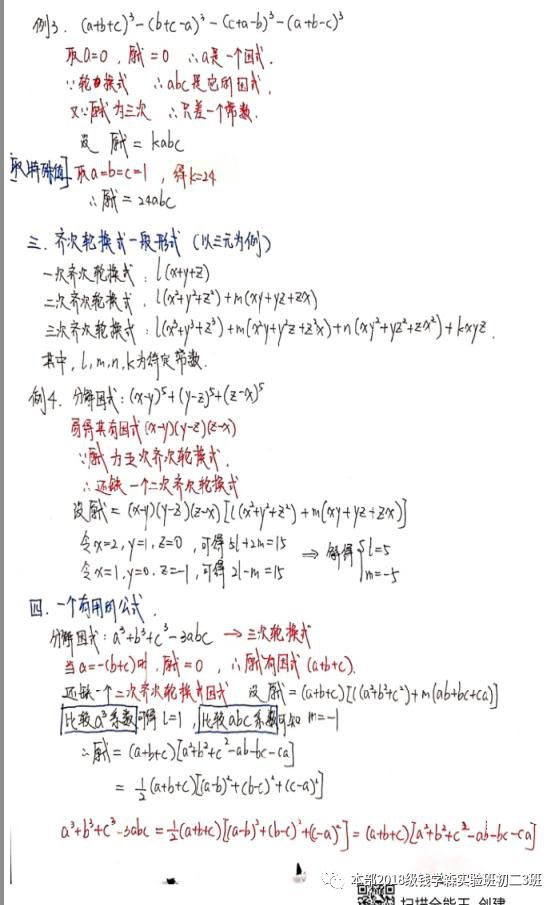 例3. (a+b+c)³-(b+c-a)³-(c+a-b)³-(a+b-c)³
取a=0, 原式=0 ∴a是一个因式.
∵轮换式 ∴abc是它的因式.
又∵原式为三次 ∴只差一个常数.
设 原式=kabc
取特殊值] 取a=b=c=1, 得k=24
∴原式=24abc
三. 齐次轮换式一般形式 (以三元为例)
一次齐次轮换式: l(x+y+z)
二次齐次轮换式. l(x²+y²+z²)+m(xy+yz+zx)
三次齐次轮换式: l(x³+y³+z³)+m(x²y+y²z+z²x)+n(xy²+yz²+zx²)+kxyz.
其中, l,m,n,k为待定常数.
例4. 分解因式: (x-y)⁵+(y-z)⁵+(z-x)⁵
易得其有因式(x-y)(y-z)(z-x)
∵原式为五次齐次轮换式.
∴还缺一个二次齐次轮换式
设原式=(x-y)(y-z)(z-x)[l(x²+y²+z²)+m(xy+yz+zx)]
令x=2,y=1,z=0, 可得5l+2m=15
令x=1,y=0,z=-1, 可得2l-m=15 ⇒ 解得{l=5 m=-5
四. 一个有用的公式.
分解因式: a³+b³+c³-3abc → 三次轮换式
当a=-(b+c)时, 原式=0, ∴原式有因式(a+b+c).
还缺一个二次齐次轮换式因式 设原式=(a+b+c)[l(a²+b²+c²)+m(ab+bc+ca)]
比较a³系数可得l=1, 比较abc系数可知m=-1
∴原式=(a+b+c)[a²+b²+c²-ab-bc-ca]
=½(a+b+c)[(a-b)²+(b-c)²+(c-a)²]
a³+b³+c³-3abc=½(a+b+c)[(a-b)²+(b-c)²+(c-a)²]=(a+b+c)[a²+b²+c²-ab-bc-ca]
本部2018级钱学森实验班初二3班
扫描全能王 创建